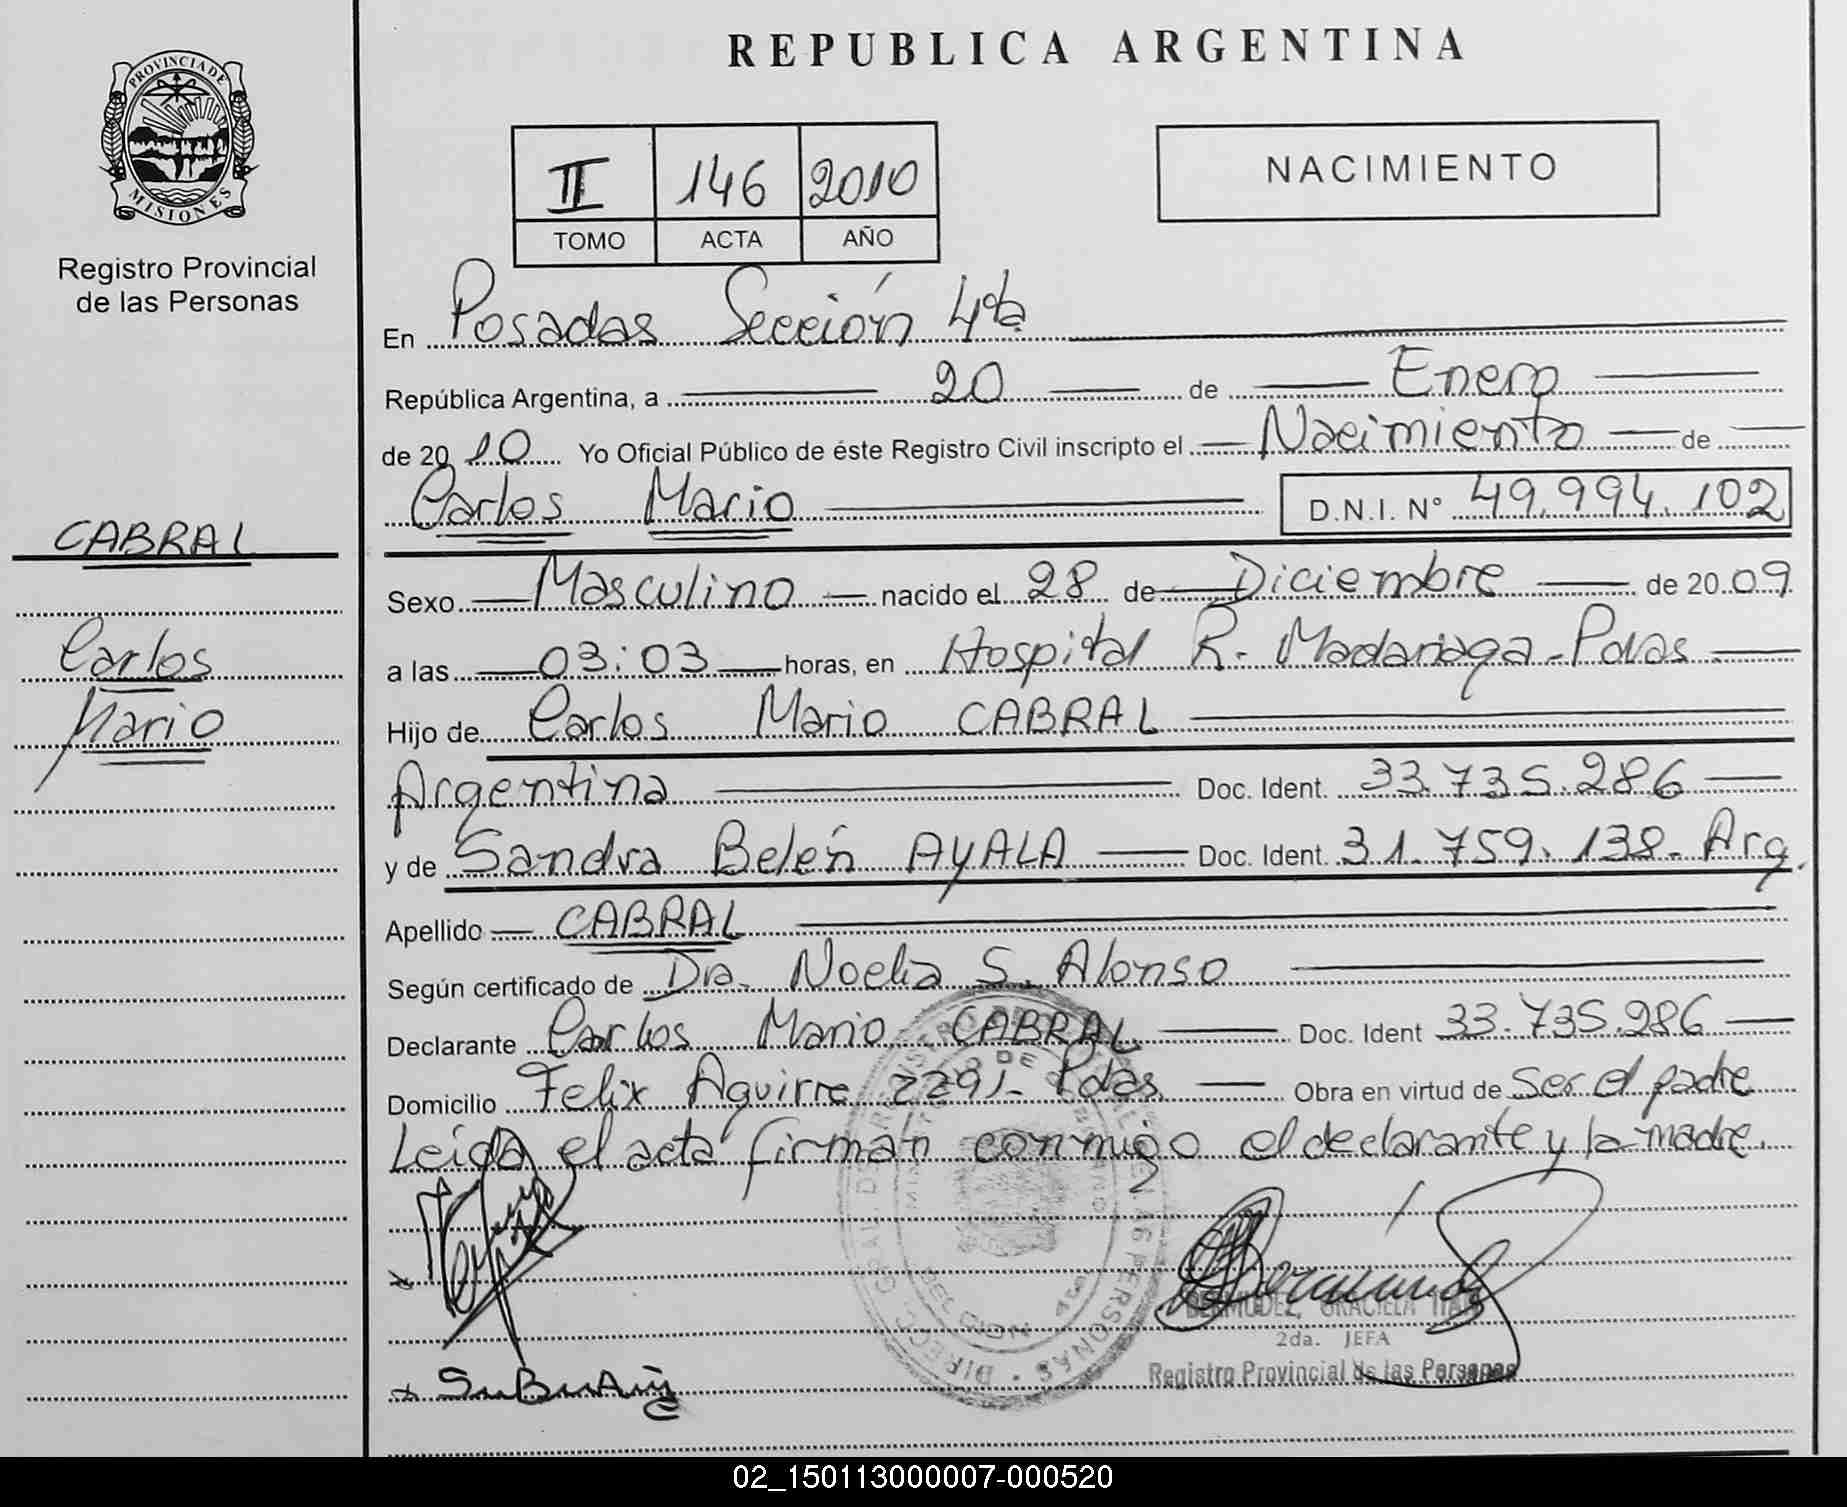 PROVINCIA DE
MISIONES
Registro Provincial
de las Personas
CABRAL
Carlos
Mario
REPUBLICA ARGENTINA
II 146 2010
TOMO ACTA AÑO
NACIMIENTO
En Posadas Sección 4ta
República Argentina, a 20 de Enero
de 2010 Yo Oficial Público de éste Registro Civil inscripto el Nacimiento de
Carlos Mario D.N.I. Nº 49.994.102
Sexo Masculino nacido el 28 de Diciembre de 2009
a las 03:03 horas, en Hospital R. Madariaga - Pdas
Hijo de Carlos Mario CABRAL
Argentina Doc. Ident. 33.735.286
y de Sandra Belén AYALA Doc. Ident. 31.759.138 - Arg.
Apellido CABRAL
Según certificado de Dra. Noelia S. Alonso
Declarante Carlos Mario CABRAL Doc. Ident 33.735.286
Domicilio Felix Aguirre 2291 - Pdas Obra en virtud de Ser el padre
Leída el acta firman conmigo el declarante y la madre.
BERMUDEZ, GRACIELA
2da. JEFA
Registro Provincial de las Personas
02_150113000007-000520